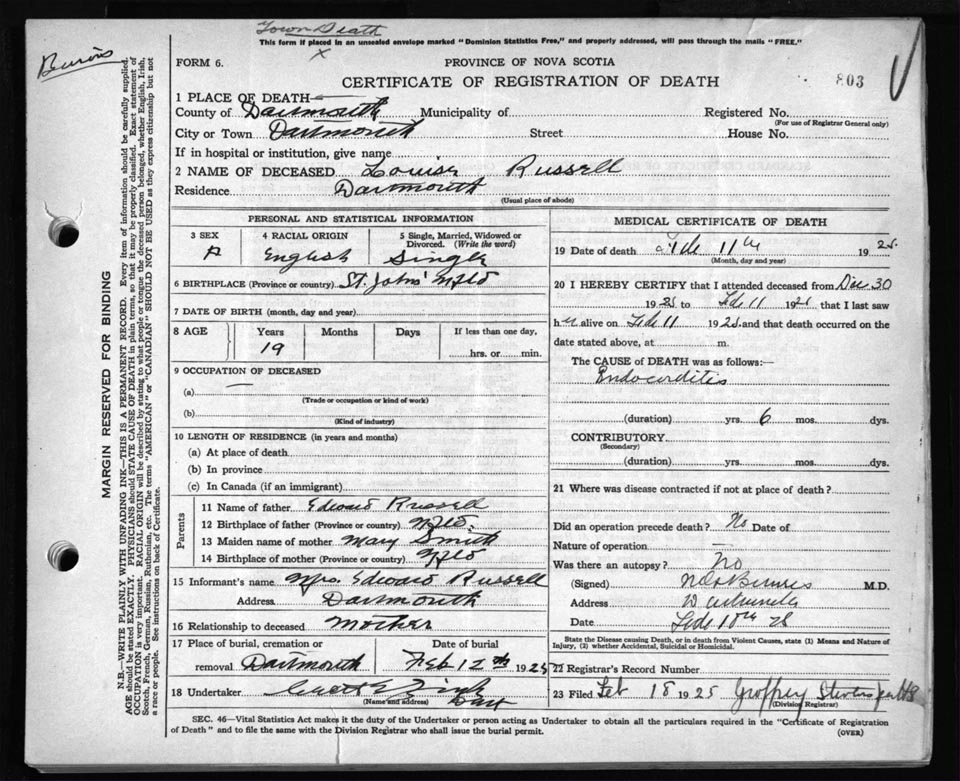 Town Death
This form if placed in an unsealed envelope marked "Dominion Statistics Free," and properly addressed, will pass through the mails "FREE."
x
FORM 6.
PROVINCE OF NOVA SCOTIA
CERTIFICATE OF REGISTRATION OF DEATH
803
1 PLACE OF DEATH—
County of Dartmouth Municipality of Registered No.
(For use of Registrar General only)
City or Town Dartmouth Street House No.
If in hospital or institution, give name
2 NAME OF DECEASED Louise Russell
Residence Dartmouth
(Usual place of abode)
PERSONAL AND STATISTICAL INFORMATION
3 SEX
4 RACIAL ORIGIN English
5 Single, Married, Widowed or Divorced. (Write the word) Single
6 BIRTHPLACE (Province or country) St. John's Nfld
7 DATE OF BIRTH (month, day and year)
8 AGE
Years Months Days If less than one day,
19 hrs. or min.
9 OCCUPATION OF DECEASED
(a) —
(Trade or occupation or kind of work)
(b)
(Kind of industry)
10 LENGTH OF RESIDENCE (in years and months)
(a) At place of death
(b) In province
(c) In Canada (if an immigrant)
Parents
11 Name of father Edward Russell
12 Birthplace of father (Province or country) Nfld.
13 Maiden name of mother Mary Smith
14 Birthplace of mother (Province or country) Nfld
15 Informant's name Mrs. Edward Russell
Address Dartmouth
16 Relationship to deceased Mother
17 Place of burial, cremation or removal Dartmouth
Date of burial Feb 12th 1925
18 Undertaker
(Name and address) Dart
MEDICAL CERTIFICATE OF DEATH
19 Date of death Feb 11th 1925
(Month, day and year)
20 I HEREBY CERTIFY that I attended deceased from Dec 30
1925 to Feb 11 1925 that I last saw
her alive on Feb 11 1925 and that death occurred on
date stated above, at m.
The CAUSE of DEATH was as follows:—
Endocarditis
(duration) yrs. 6 mos. dys.
CONTRIBUTORY
(Secondary)
(duration) yrs. mos. dys.
21 Where was disease contracted if not at place of death?
Did an operation precede death? No Date of
Nature of operation —
Was there an autopsy? No
(Signed) M.D.
Address
Date
State the Disease causing Death, or in death from Violent Causes, state (1) Means and Nature of Injury, (2) whether Accidental, Suicidal or Homicidal.
22 Registrar's Record Number
23 Filed Feb 18 1925 Geoffrey Stevens
(Division Registrar)
SEC. 46—Vital Statistics Act makes it the duty of the Undertaker or person acting as Undertaker to obtain all the particulars required in the "Certificate of Registration
of Death" and to file the same with the Division Registrar who shall issue the burial permit.
(OVER)
MARGIN RESERVED FOR BINDING
N.B.—WRITE PLAINLY WITH UNFADING INK—THIS IS A PERMANENT RECORD. Every item of information should be carefully supplied.
AGE should be stated EXACTLY. PHYSICIANS should STATE CAUSE OF DEATH in plain terms, so that it may be properly classified. Exact statement of
OCCUPATION is very important. RACIAL ORIGIN will be described by stating to what people or tongue the deceased person belonged, whether English, Irish,
Scotch, French, German, Russian, Ruthenian, etc. The terms "AMERICAN" or "CANADIAN" SHOULD NOT BE USED as they express citizenship but not
a race or people. See instructions on back of Certificate.